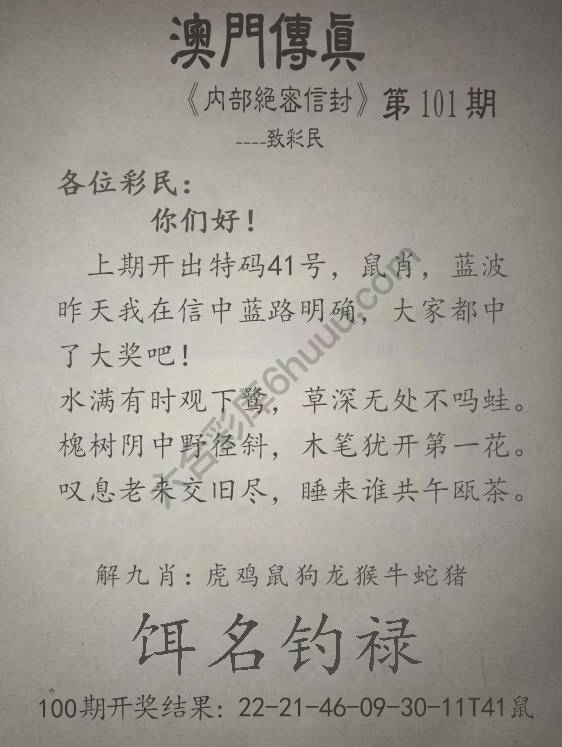 澳門傳眞
《内部絕密信封》第101期
----致彩民
各位彩民:
你们好!
上期开出特码41号, 鼠肖, 蓝波
昨天我在信中蓝路明确, 大家都中
了大奖吧!
水满有时观下鹭, 草深无处不吗蛙。
槐树阴中野径斜, 木笔犹开第一花。
叹息老来交旧尽, 睡来谁共午瓯茶。
解九肖: 虎鸡鼠狗龙猴牛蛇猪
饵名钓禄
100期开奖结果: 22-21-46-09-30-11T41鼠
六合彩库6huuu.com